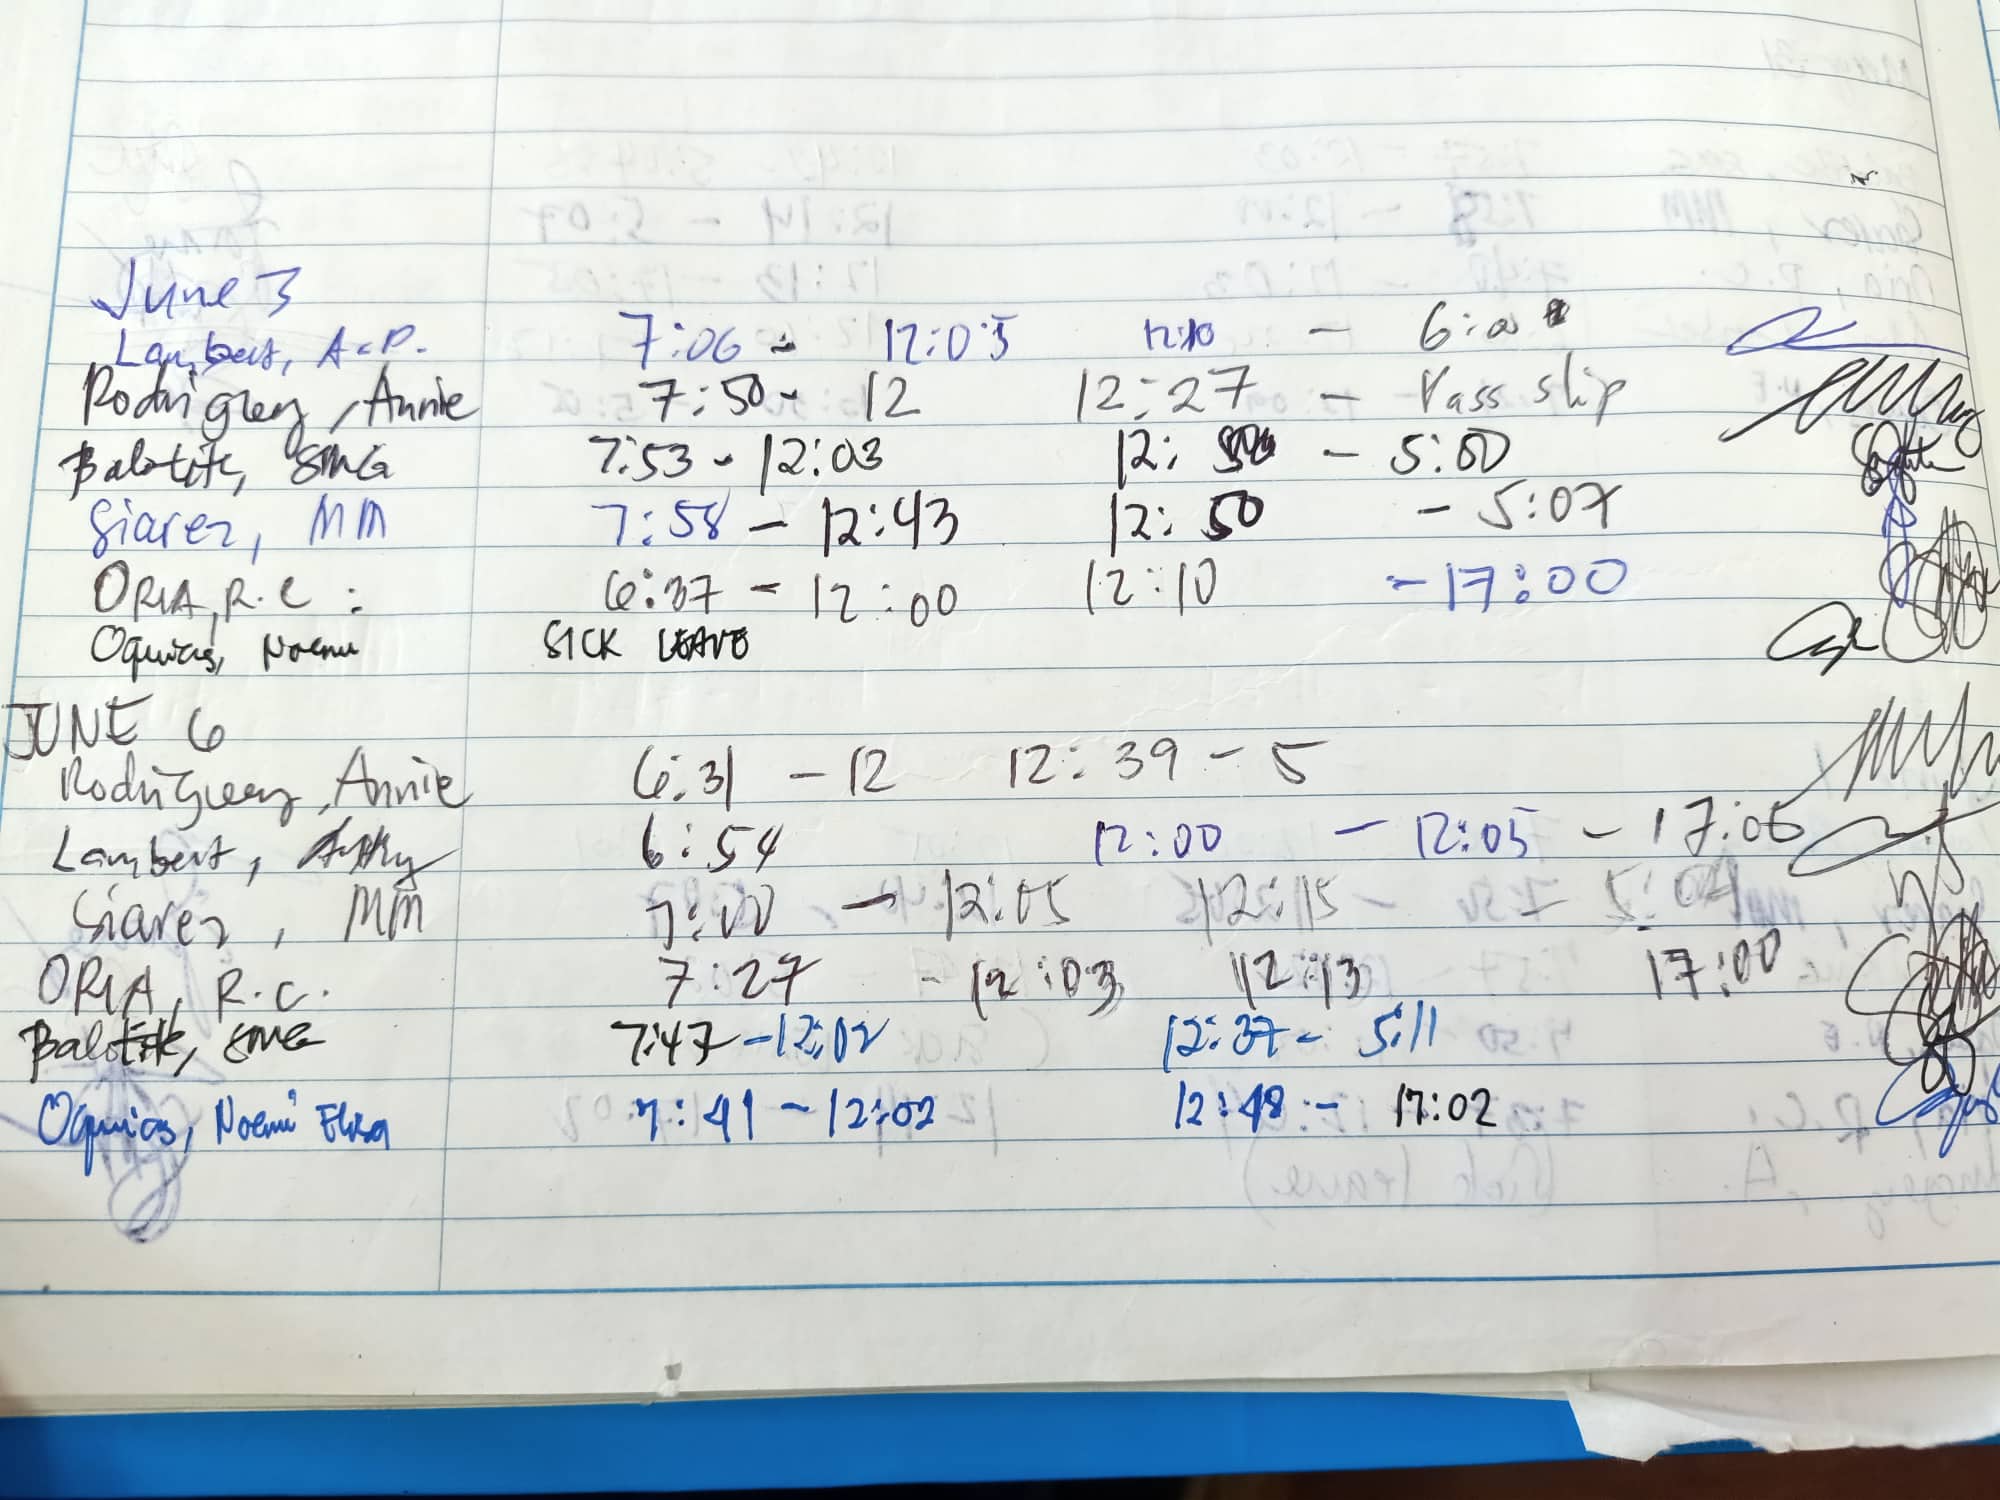 June 3
Lambert, A.P. 7:06 - 12:05 12:10 - 6:00
Rodriguez, Annie 7:50 - 12 12:27 - Pass slip
Balotite, SMG 7:53 - 12:03 12: 50 - 5:00
Siarez, MM 7:58 - 12:43 12: 50 - 5:07
ORIA, R.C : 6:37 - 12:00 12:10 - 17:00
Oquias, Noemi SICK LEAVE
JUNE 6
Rodriguez, Annie 6:31 - 12 12:39 - 5
Lambert, 6:54 12:00 - 12:05 - 17:06
Siarez, MM 7:00 - 12:05 12:15 - 5:04
ORIA, R.C. 7:27 - 12:03 12:13 17:00
Balotite, SMG 7:47 - 12:02 12:37 - 5:11
Oquias, Noemi Elisa 7:41 - 12:02 12:48 - 17:02